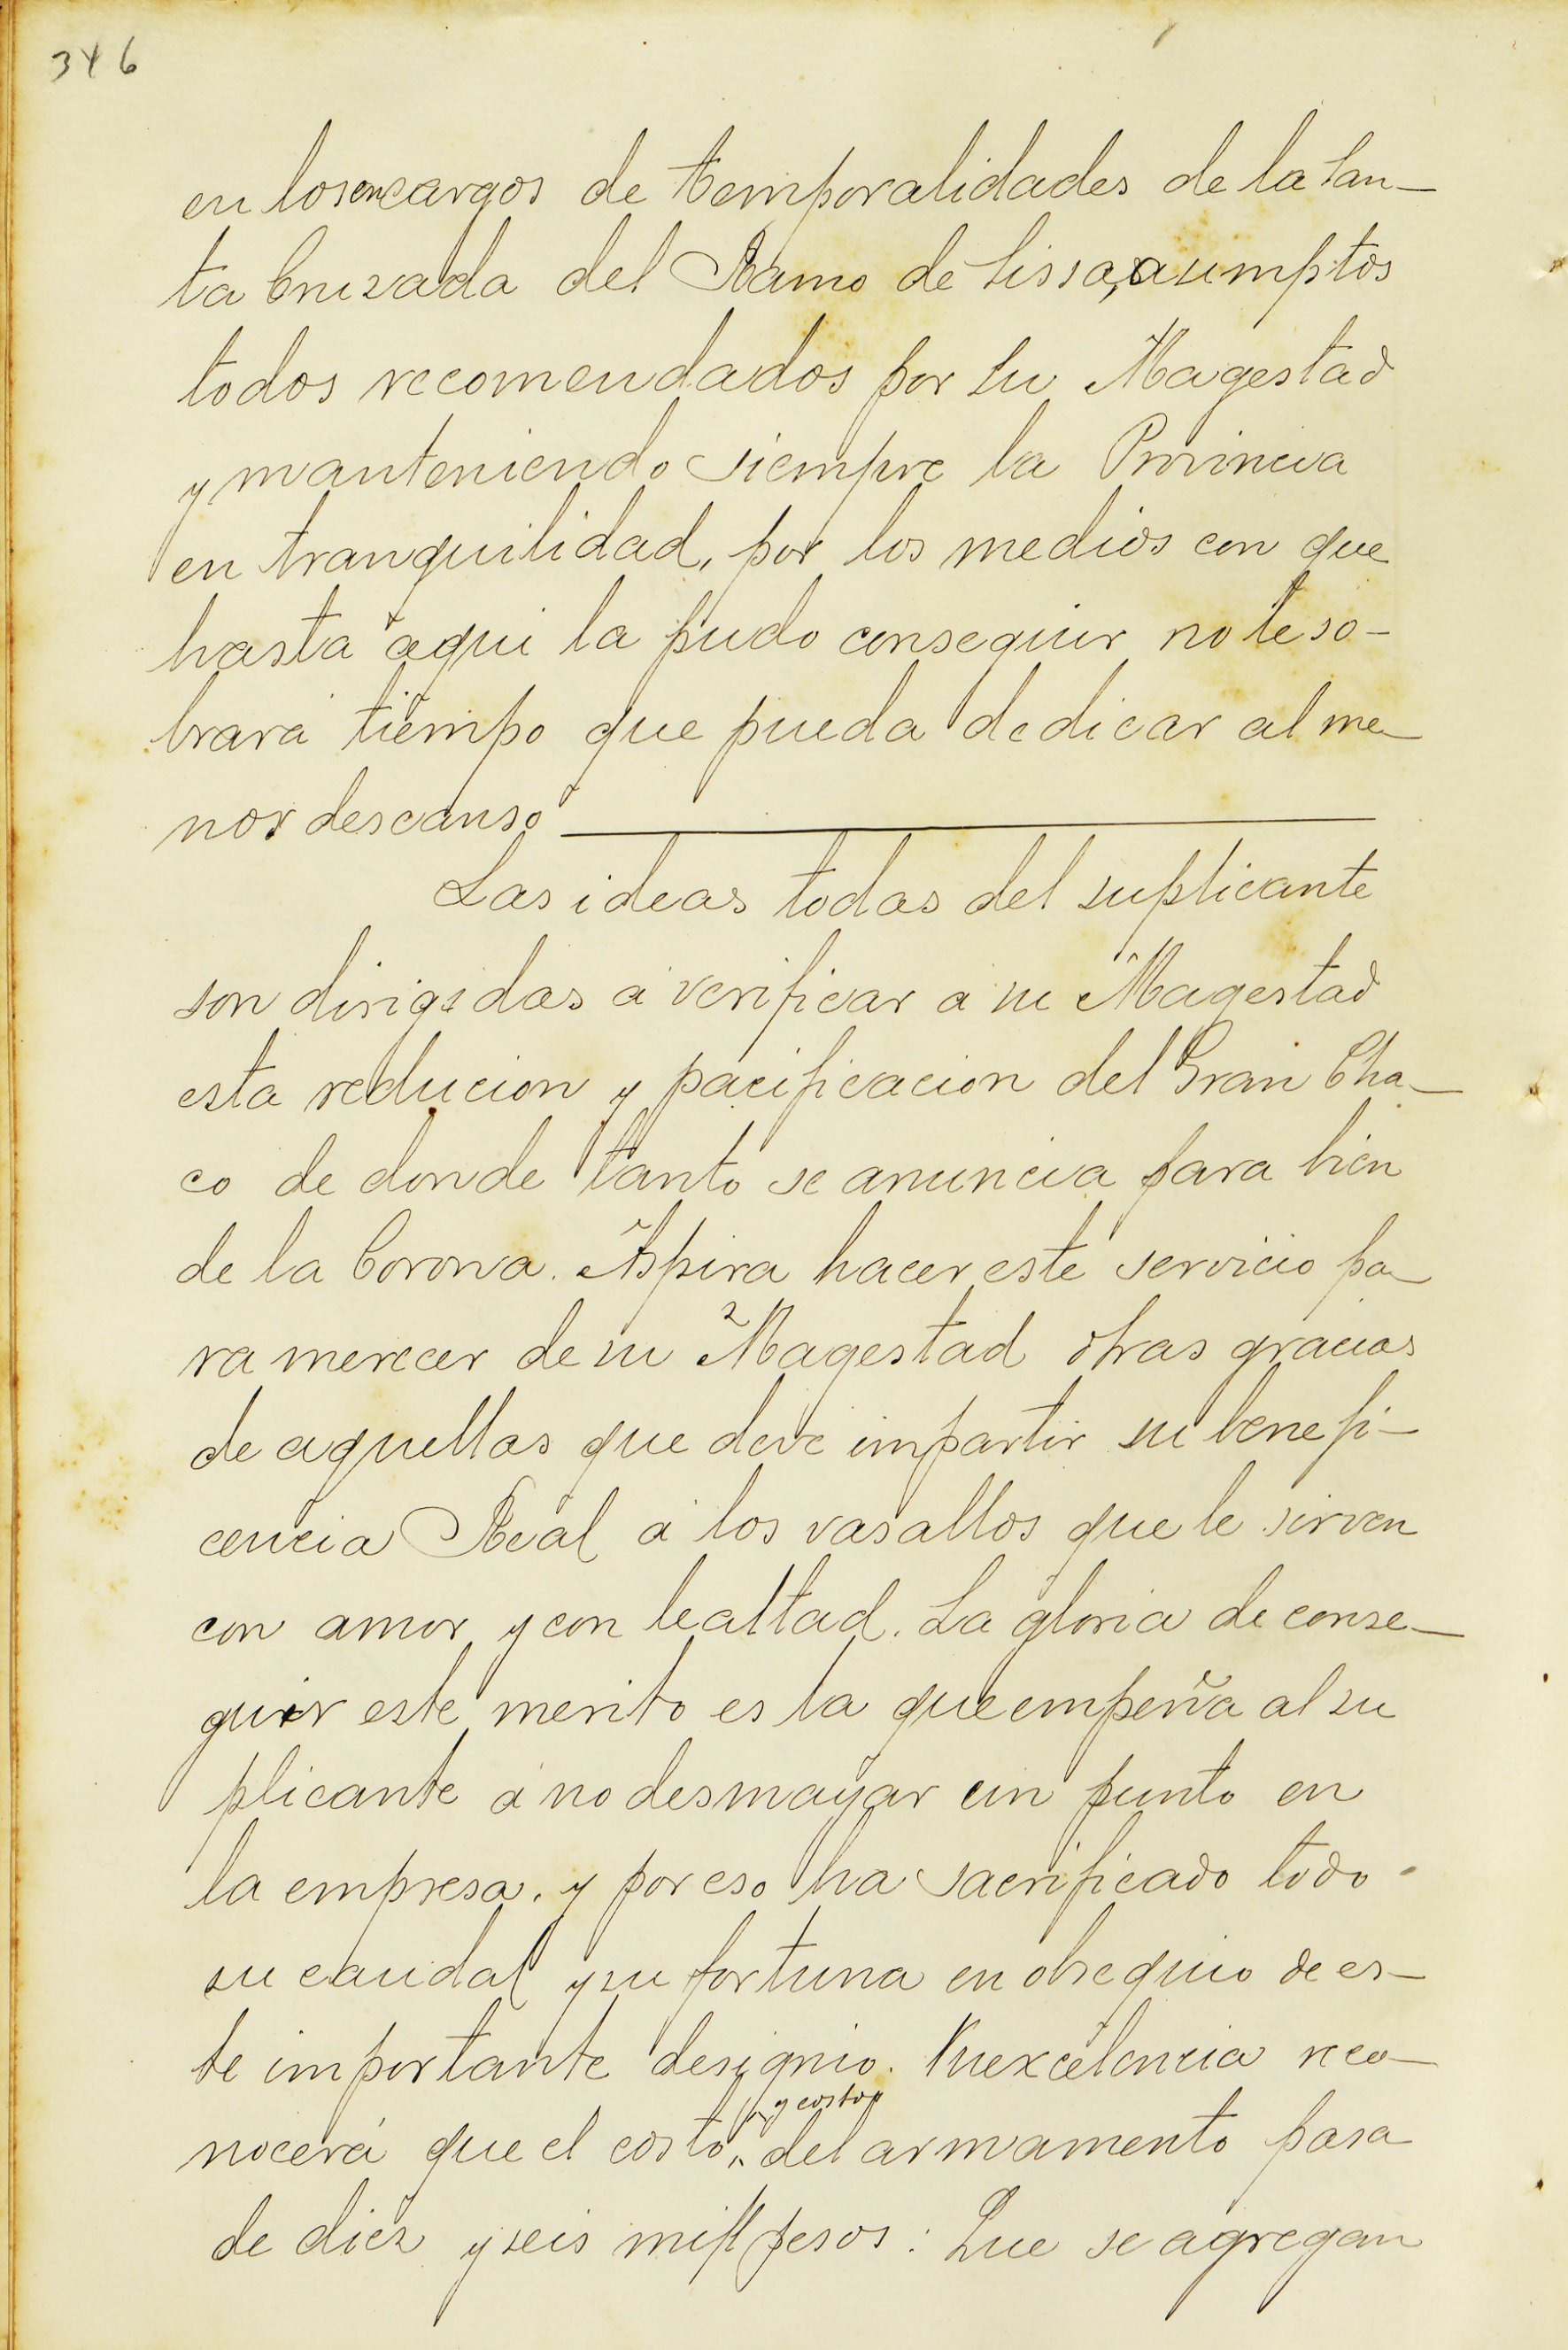 346
en los encargos de temporalidades de la San-
ta Cruzada del Ramo de Sissa, asumptos
todos recomendados por su Magestad
y manteniendo siempre la Provincia
en tranquilidad, por los medios con que
hasta aqui la pudo conseguir no le so-
brará tiempo que pueda dedicar al me-
nor descanso
Las ideas todas del suplicante
son dirigidas á verificar a su Magestad
esta reducion y pacificacion del Gran Cha-
co de donde tanto se anuncia para bien
de la Corona. Aspira hacer este servicio pa-
ra merecer de su Magestad otras gracias
de aquellas que deve impartir su benefi-
cencia Real á los vasallos que le sirven
con amor y con lealtad. La gloria de conse-
guir este merito es la que empeña al su
plicante á no desmayar un punto en
la empresa, y por eso ha sacrificado todo
su caudal y su fortuna en obsequio de es-
te importante designio. Vuexcelencia reco-
y costas
nocerá que el costo del armamento pasa
de diez y seis mill pesos: Que se agregan